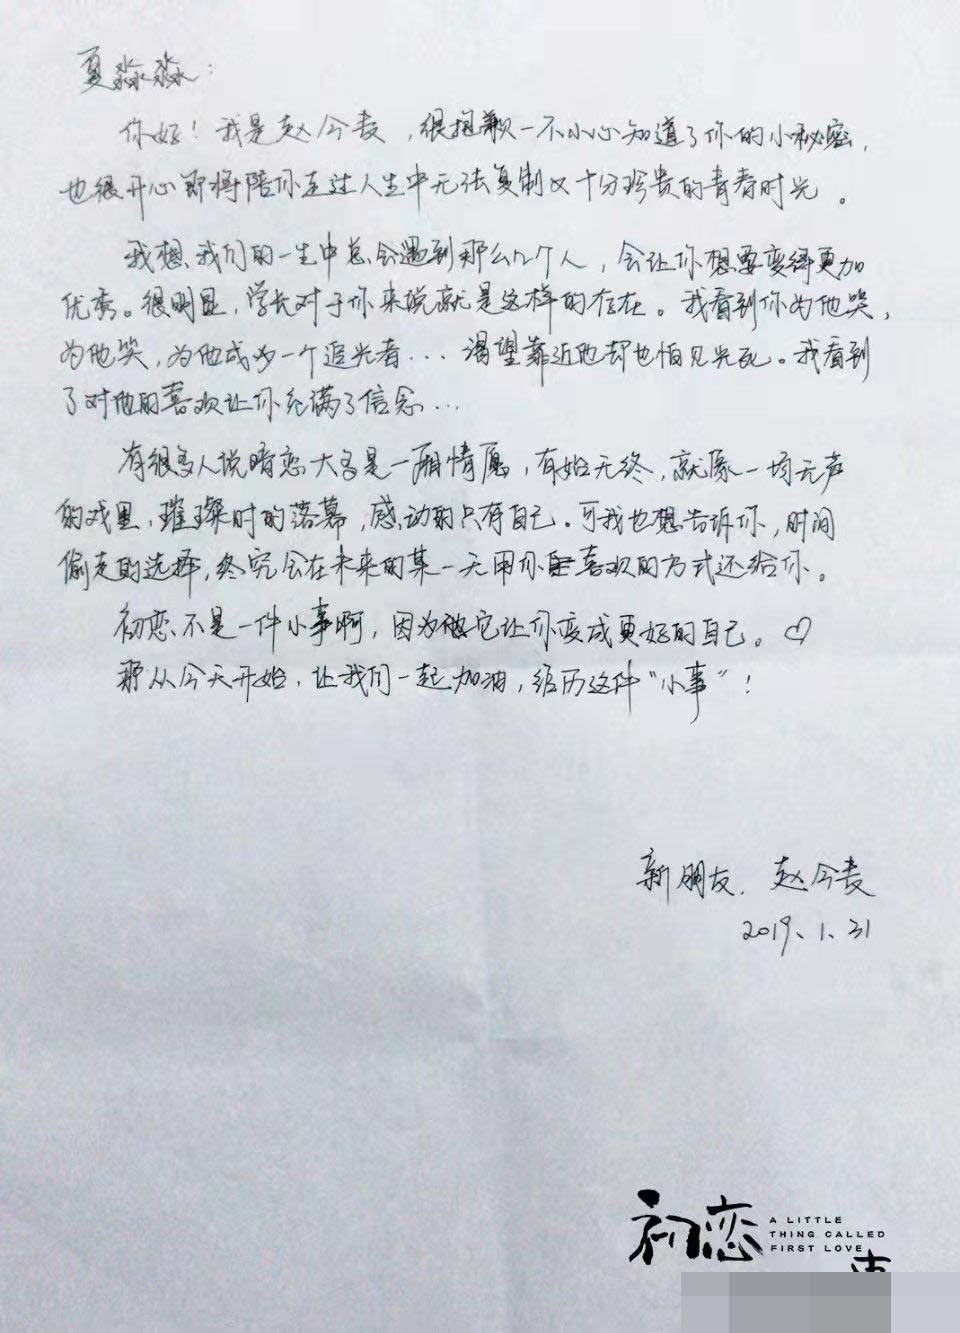 夏淼淼：
你好！我是赵今麦，很抱歉一不小心知道了你的小秘密，
也很开心即将陪你走过人生中无法复制又十分珍贵的青春时光。
我想，我们的一生中总会遇到那么几个人，会让你想要变得更加
优秀。很明显，学长对于你来说就是这样的存在。我看到你为他哭，
为他笑，为他成为一个追光者...渴望靠近他却也怕见光死。我看到
了对他的喜欢让你充满了信念...
有很多人说暗恋大多是一厢情愿，有始无终，就像一场无声
的戏里，璀璨时的落幕，感动的只有自己。可我也想告诉你，时间
偷走的选择，终究会在未来的某一天用你喜欢的方式还给你。
初恋不是一件小事啊，因为它让你变成更好的自己。♡
那从今天开始，让我们一起加油，经历这件“小事”！
新朋友，赵今麦
2019、1、31
初恋 A LITTLE
THING CALLED
FIRST LOVE